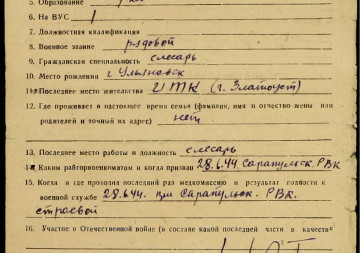 5. Образование
6. На ВУС 1
7. Должностная квалификация
8. Военное звание рядовой
9. Гражданская специальность слесарь
10. Место рождения г. Ульяновск
11. Последнее место жительства ИТК (г. Златоуст)
12. Где проживает в настоящее время семья (фамилия, имя и отчество жены или
родителей и точный их адрес) нет
13. Последнее место работы и должность слесарь
14. Каким райгорвоенкоматом и когда призван 28.6.44. Сарапульск. РВК
15. Когда и где проходил последний раз медкомиссию и результат годности к
военной службе 28.6.44. при Сарапульск. РВК.
строевой
16. Участие в Отечественной войне (в составе какой последней части в качестве